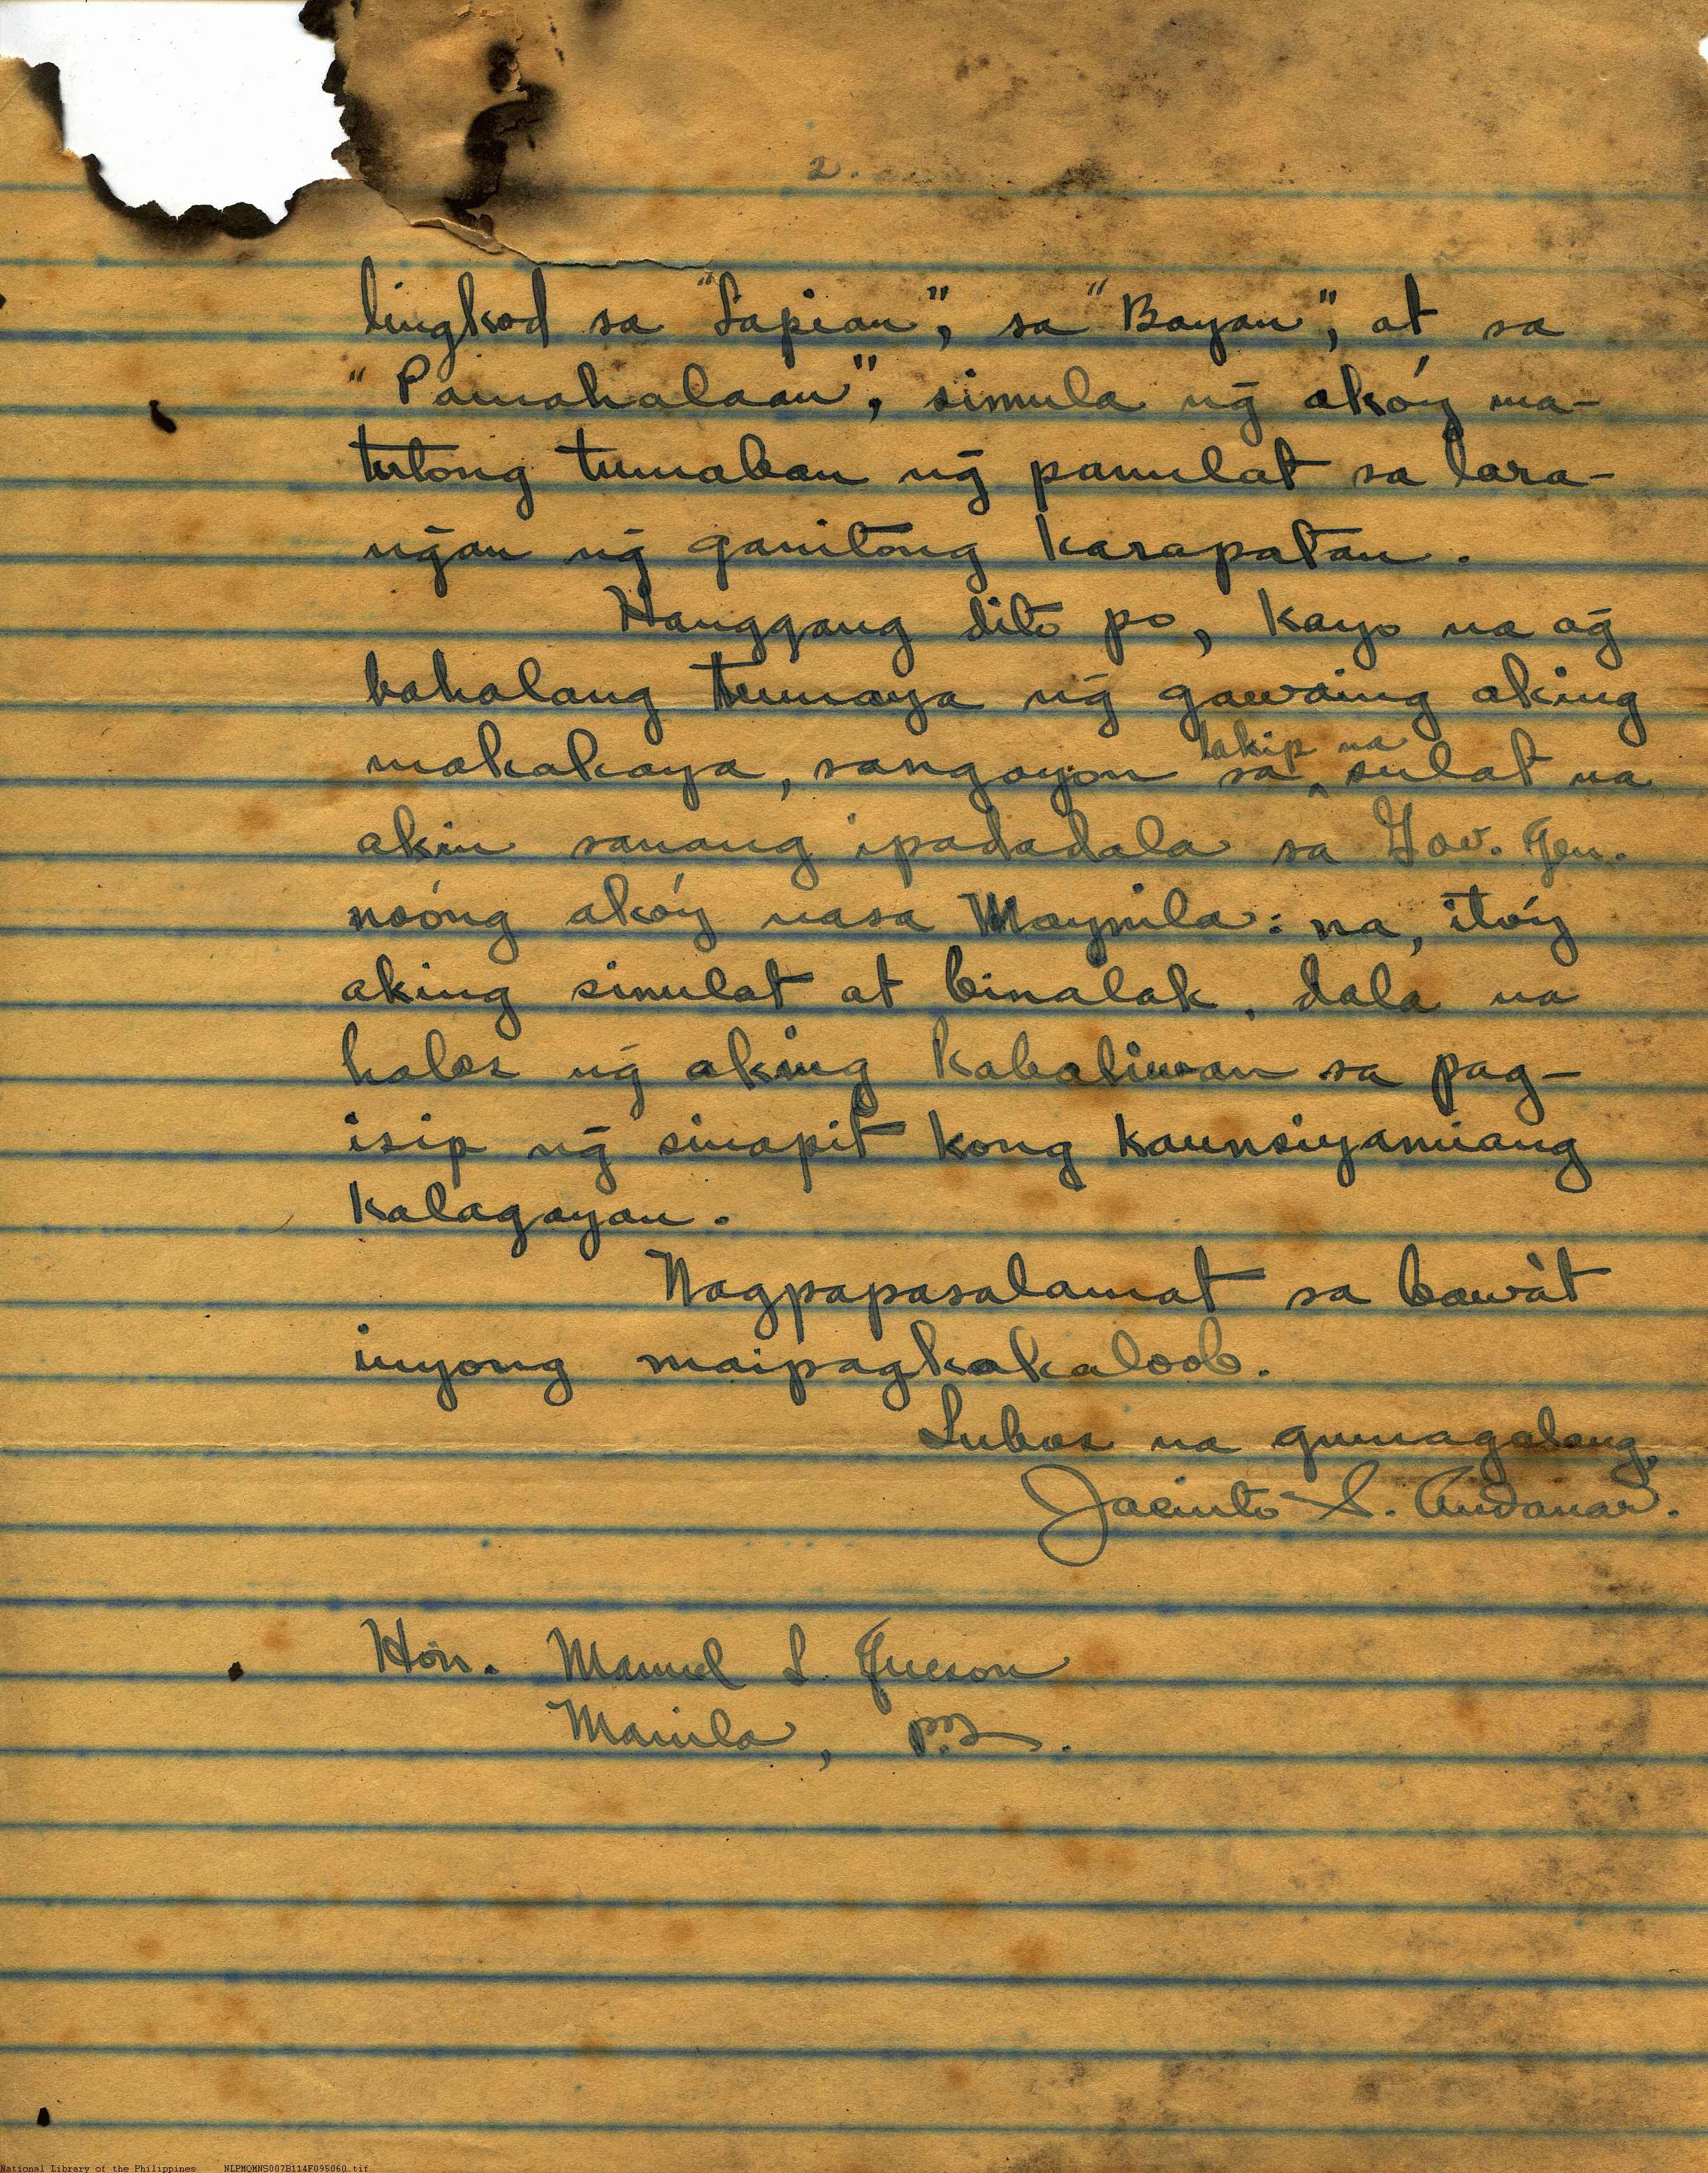 2.
lingkod sa "Lapian", sa "Bayan", at sa
"Pamahalaan", simula ng̃ akóy ma-
tutong tumaban ng̃ panulat sa lara-
ng̃an ng̃ ganitong karapatan.
Hanggang dito po, kayo na ag̃
bahalang tumaya ng̃ gawaing aking
makakaya, sangayon sa ^ lakip na sulat na
akin sanang ipadadala sa Gov. Gen.
noóng akóy nasa Maynila: na, itóy
aking sinulat at binalak, dala na
halos ng̃ aking kabaliwan sa pag-
isip ng̃ sinapit kong kaunsiyamiang
kalagayan.
Nagpapasalamat sa bawàt
inyong maipagkakaloob.
Lubos na gumagalang,
Jacinto S. Andanar.
Hon. Manuel L. Quezon
Manila, P.I.
National Library of the Philippines NLPMQMNS007B114F095060.tif